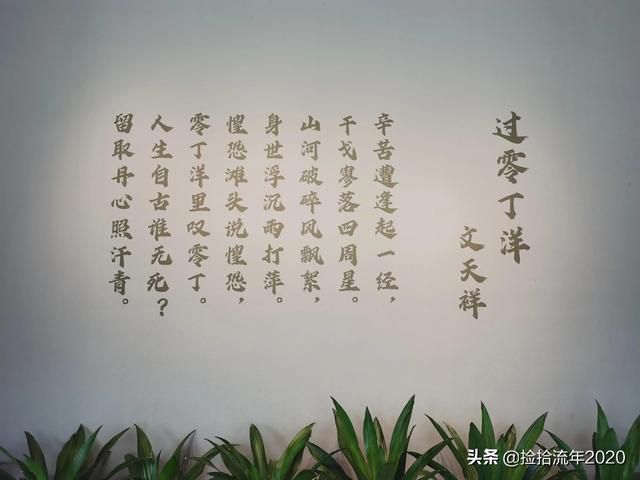 过零丁洋
文天祥
辛苦遭逢起一经，
干戈寥落四周星。
山河破碎风飘絮，
身世浮沉雨打萍。
惶恐滩头说惶恐，
零丁洋里叹零丁。
人生自古谁无死？
留取丹心照汗青。
头条 @捡拾流年2020